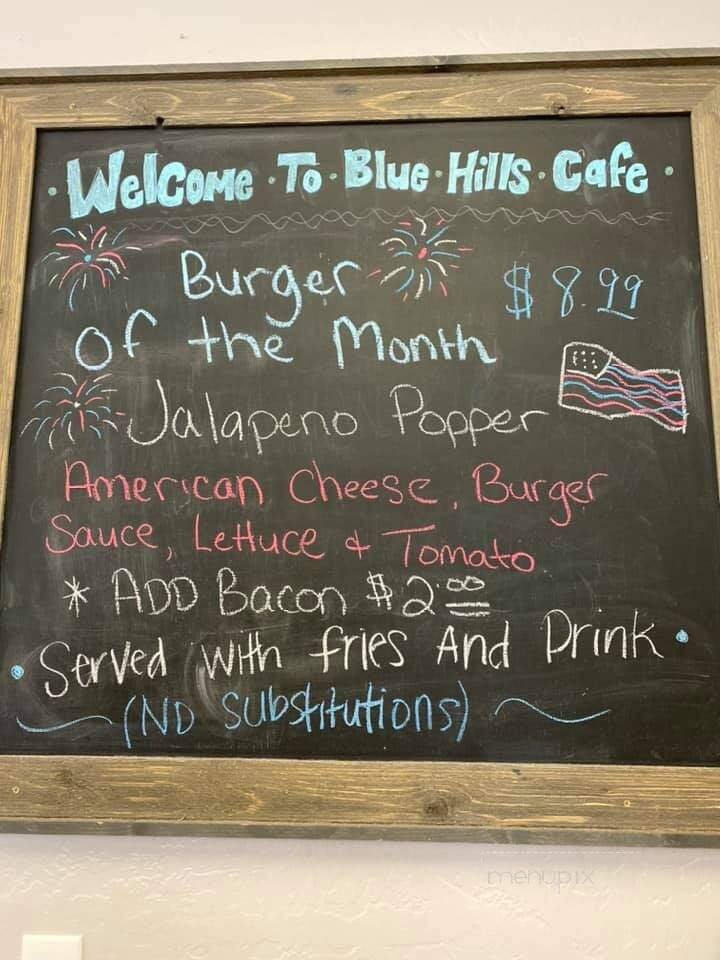 Welcome · To · Blue · Hills · Cafe ·
Burger $8.99
Of the Month
Jalapeno Popper
American Cheese, Burger
Sauce, Lettuce & Tomato
* ADD Bacon $2.00
· Served with fries And Drink ·
(NO Substitutions)
menupix